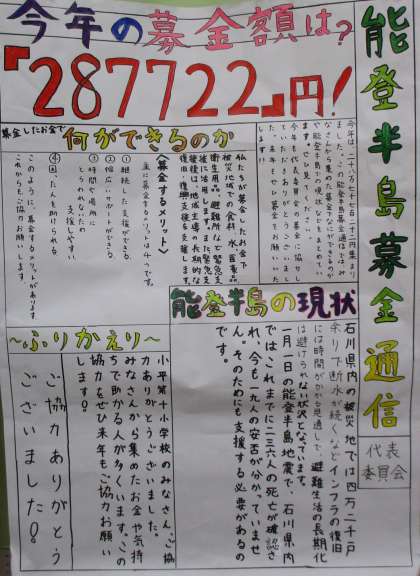 能登半島募金通信
代表
委員会
今年の募金額は?
『287722』円!
今年は、二十八万七千七百二十二円集まり
ました。この能登半島募金通信ではみ
なさんから集めた募金で何ができるのか
や能登半島の現状などをまとめてい
ます。ぜひ見てください。
今年も代表委員会の募金に協力し
ていただきありがとうございまし
た。来年もぜひ募金をお願いいた
します!!
募金したお金で
何ができるのか
私たちが募金したお金で
被災地域での食料、水、医薬品
衛生用品、避難所など緊急支
援に活用します。また緊急支
援後には、地域主導の長期的な
復旧・復興支援も支援します。
〈募金するメリット〉
主に募金するメリットは4つです。
①継続した支援ができる
②幅広いサポートができる
③時間や場所に
とらわれないため
支援しやすい
④困った人を助けられる
このように、募金するメリットがあります
これからもご協力お願いします
能登半島の現状
石川県内の被災地では四万二千戸
余りで断水が続くなどインフラの復旧
には時間がかかる見通しで、避難生活の長期化
は避けられない状況となっています。
一月一日の能登半島地震で、石川県内
ではこれまでに二三六人の死亡が確認さ
れ、今も一九人の安否が分かっていませ
ん。そのためにも支援する必要があるの
です。
~ふりかえり~
小平第十小学校のみなさん、ご協
力ありがとうございました。
みなさんから集めたお金や気持
ちで助かる人が多くいます。この
協力をぜひ来年もご協力お願い
します!
ご協力ありがとう
ございました!